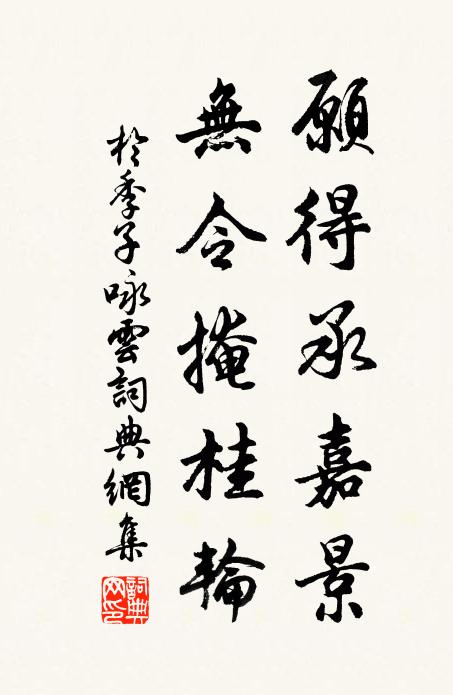 願得承嘉景
無令掩桂輪
於季子咏雲詞典網集
詞典網印